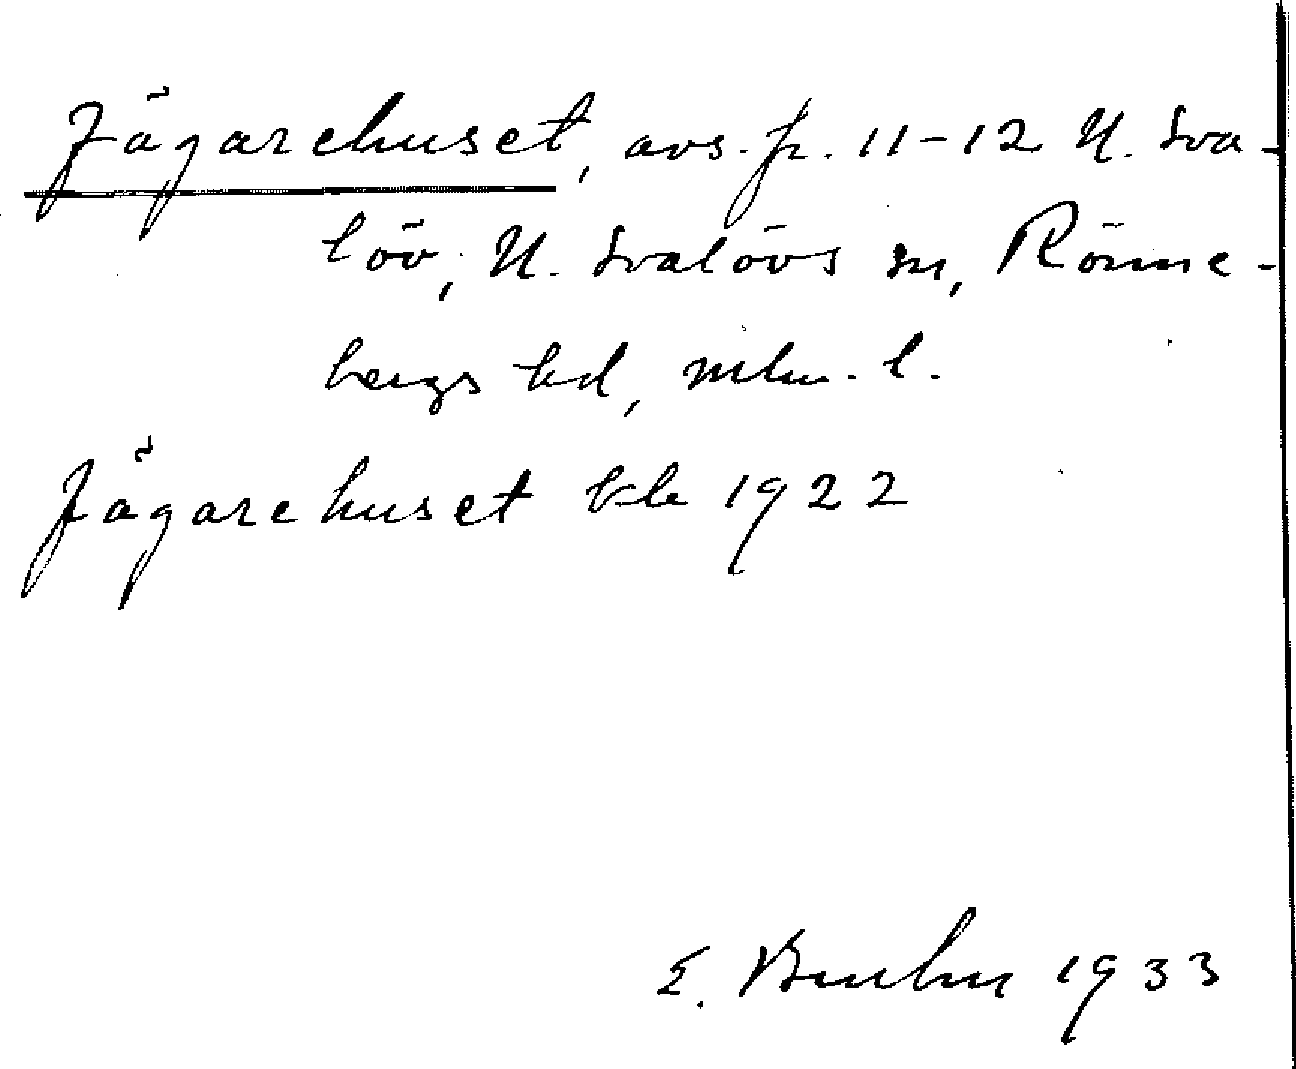 Jägarehuset, avs. fr. 11-12 N. Sva-
löv, N. Svalövs sn, Rönne-
bergs hd, mlm. l.
Jägarehuset kk 1922
E. Bruhn 1933